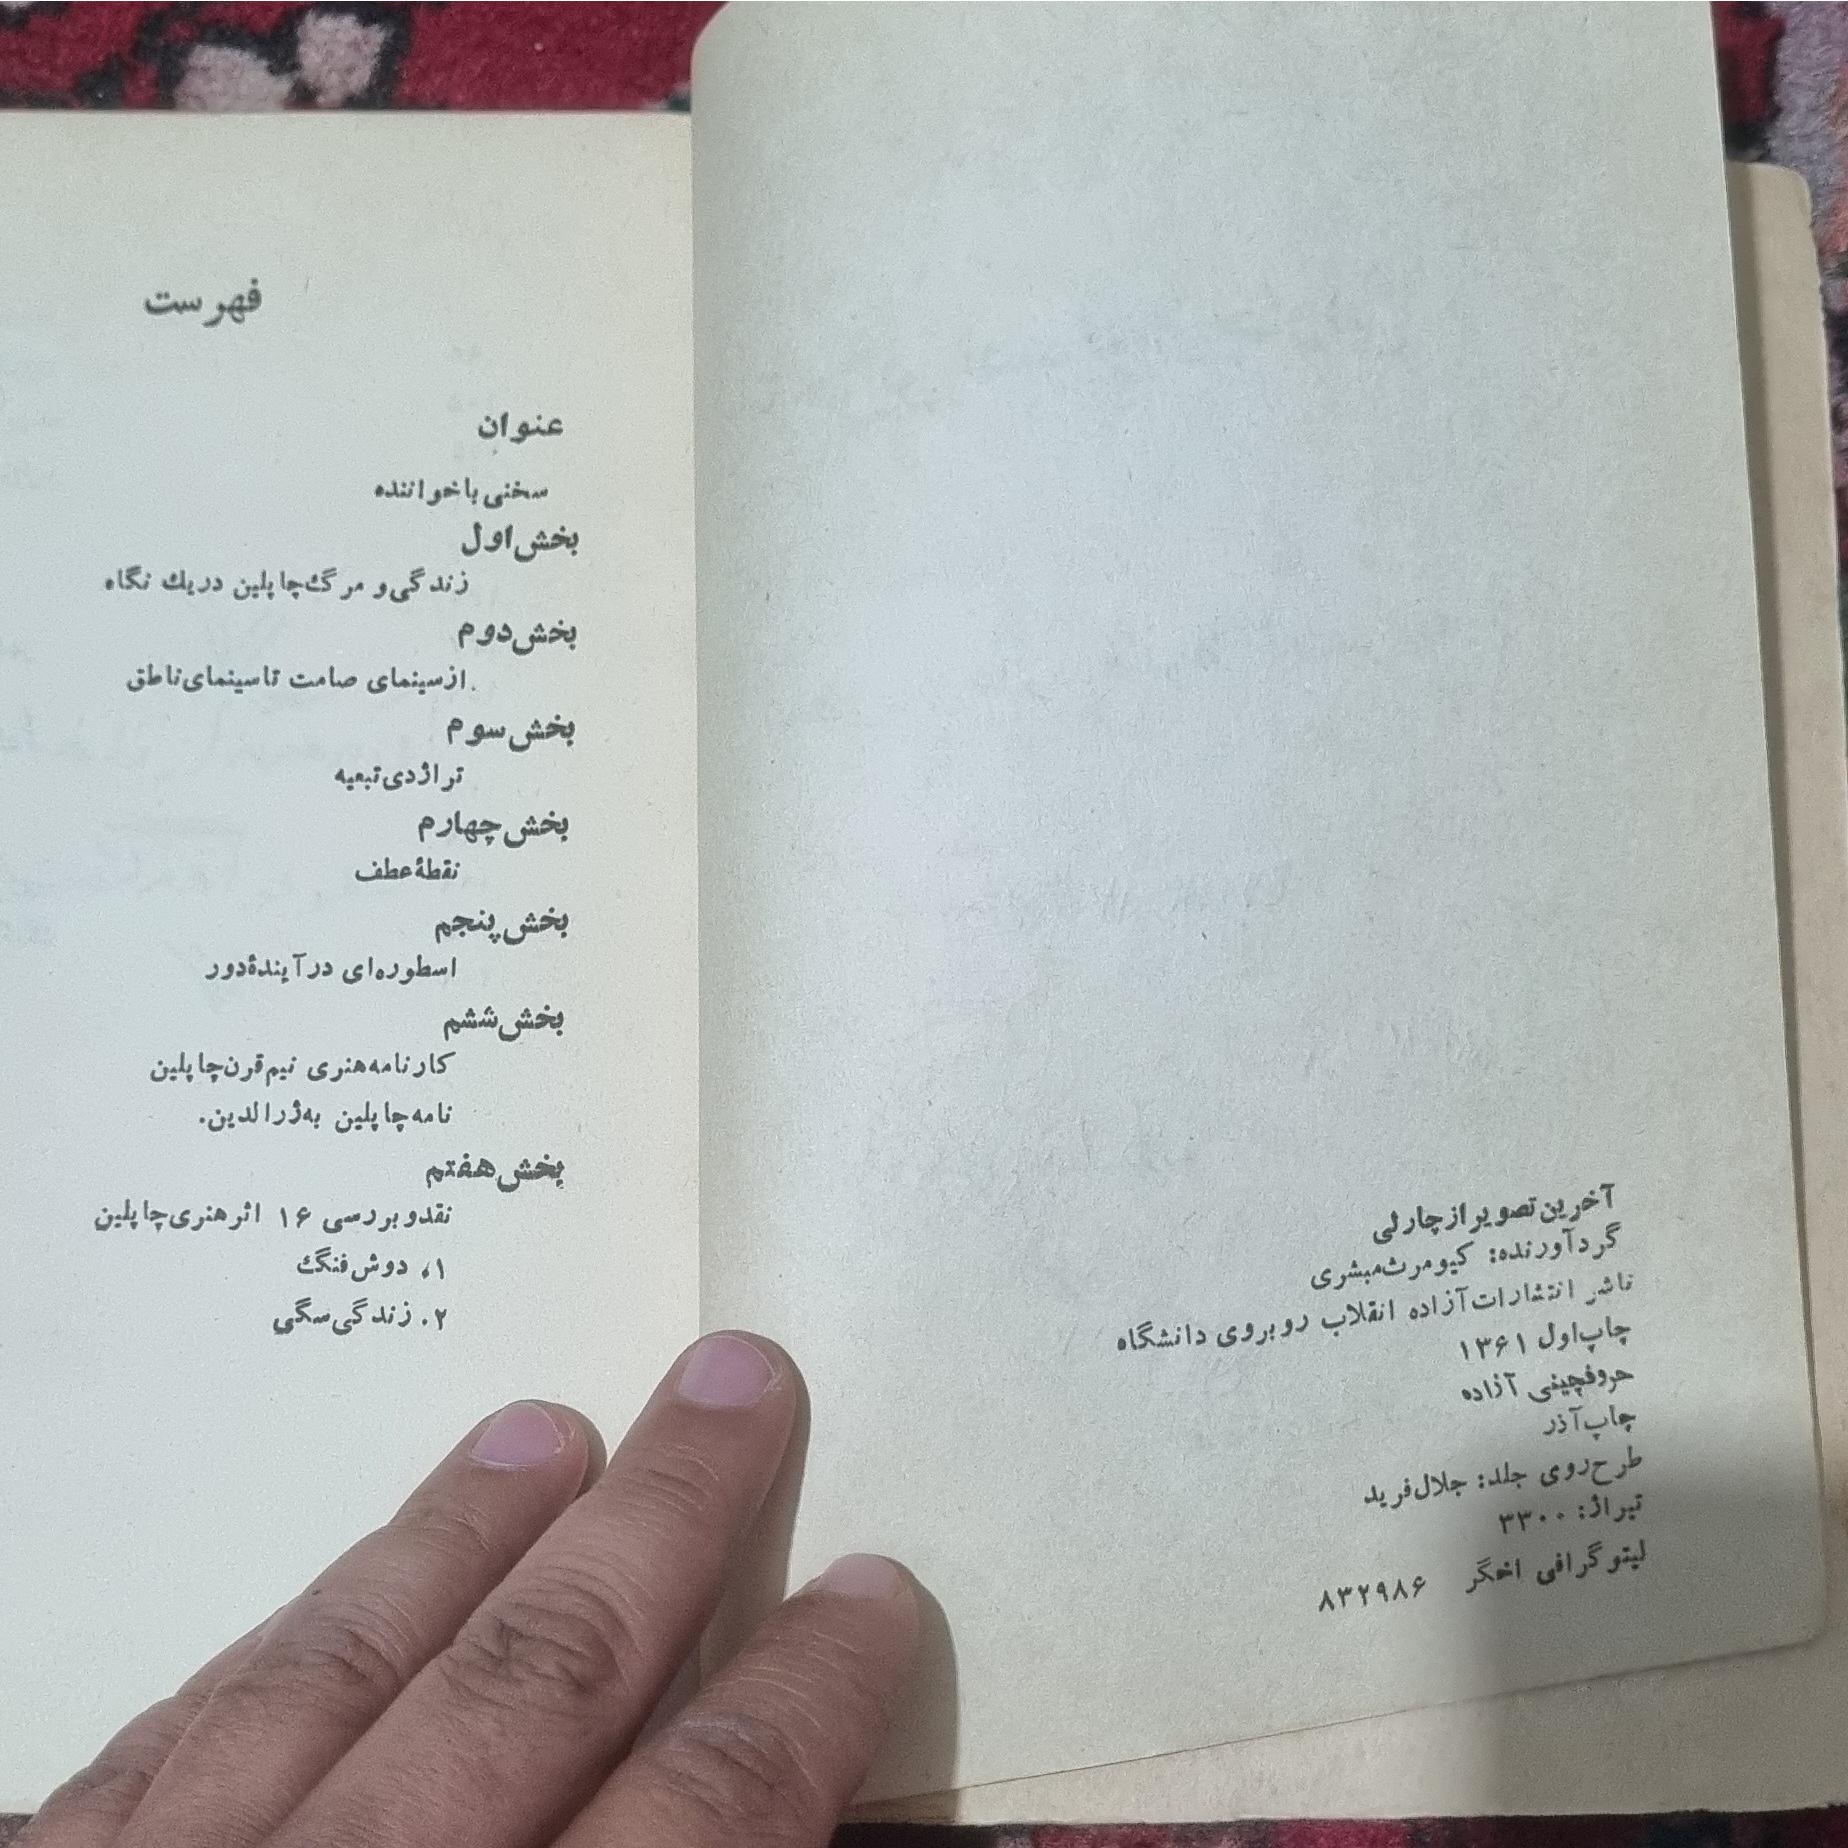 آخرین تصویر از چارلی
گردآورنده: کیومرث مبشری
ناشر انتشارات آزاده انقلاب روبروی دانشگاه
چاپ اول ۱۳۶۱
حروفچینی آزاده
چاپ آذر
طرح روی جلد: جلال فرید
تیراژ: ۳۳۰۰
لیتوگرافی اخگر ۸۳۲۹۸۶
فهرست
عنوان
سخنی با خواننده
بخش اول
زندگی و مرگ چاپلین در یك نگاه
بخش دوم
از سینمای صامت تا سینمای ناطق
بخش سوم
تراژدی تبعیه
بخش چهارم
نقطهٔ عطف
بخش پنجم
اسطوره‌ای در آیندهٔ دور
بخش ششم
کارنامه هنری نیم قرن چاپلین
نامه چاپلین به ژرالدین.
بخش هفتم
نقد و بررسی ۱۶ اثر هنری چاپلین
۱، دوش فنگ
۲. زندگی سگی